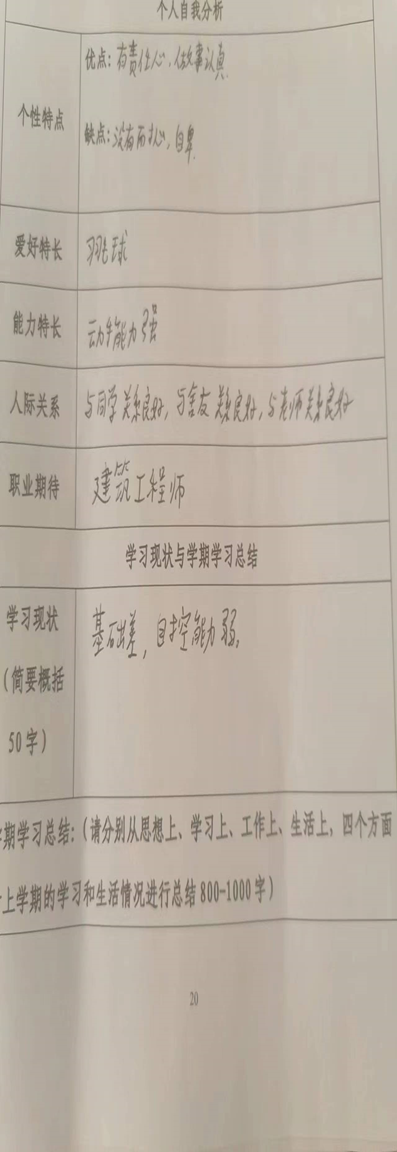 个人自我分析
个性特点
优点: 有责任心, 做事认真
缺点: 没有耐心, 自卑
爱好特长
羽毛球
能力特长
动手能力强
人际关系
与同学关系良好, 与室友关系良好, 与老师关系良好
职业期待
建筑工程师
学习现状与学期学习总结
学习现状
(简要概括
50字)
基础差, 自控能力弱,
期学习总结:(请分别从思想上、学习上、工作上、生活上, 四个方面
上学期的学习和生活情况进行总结 800-1000 字)
20